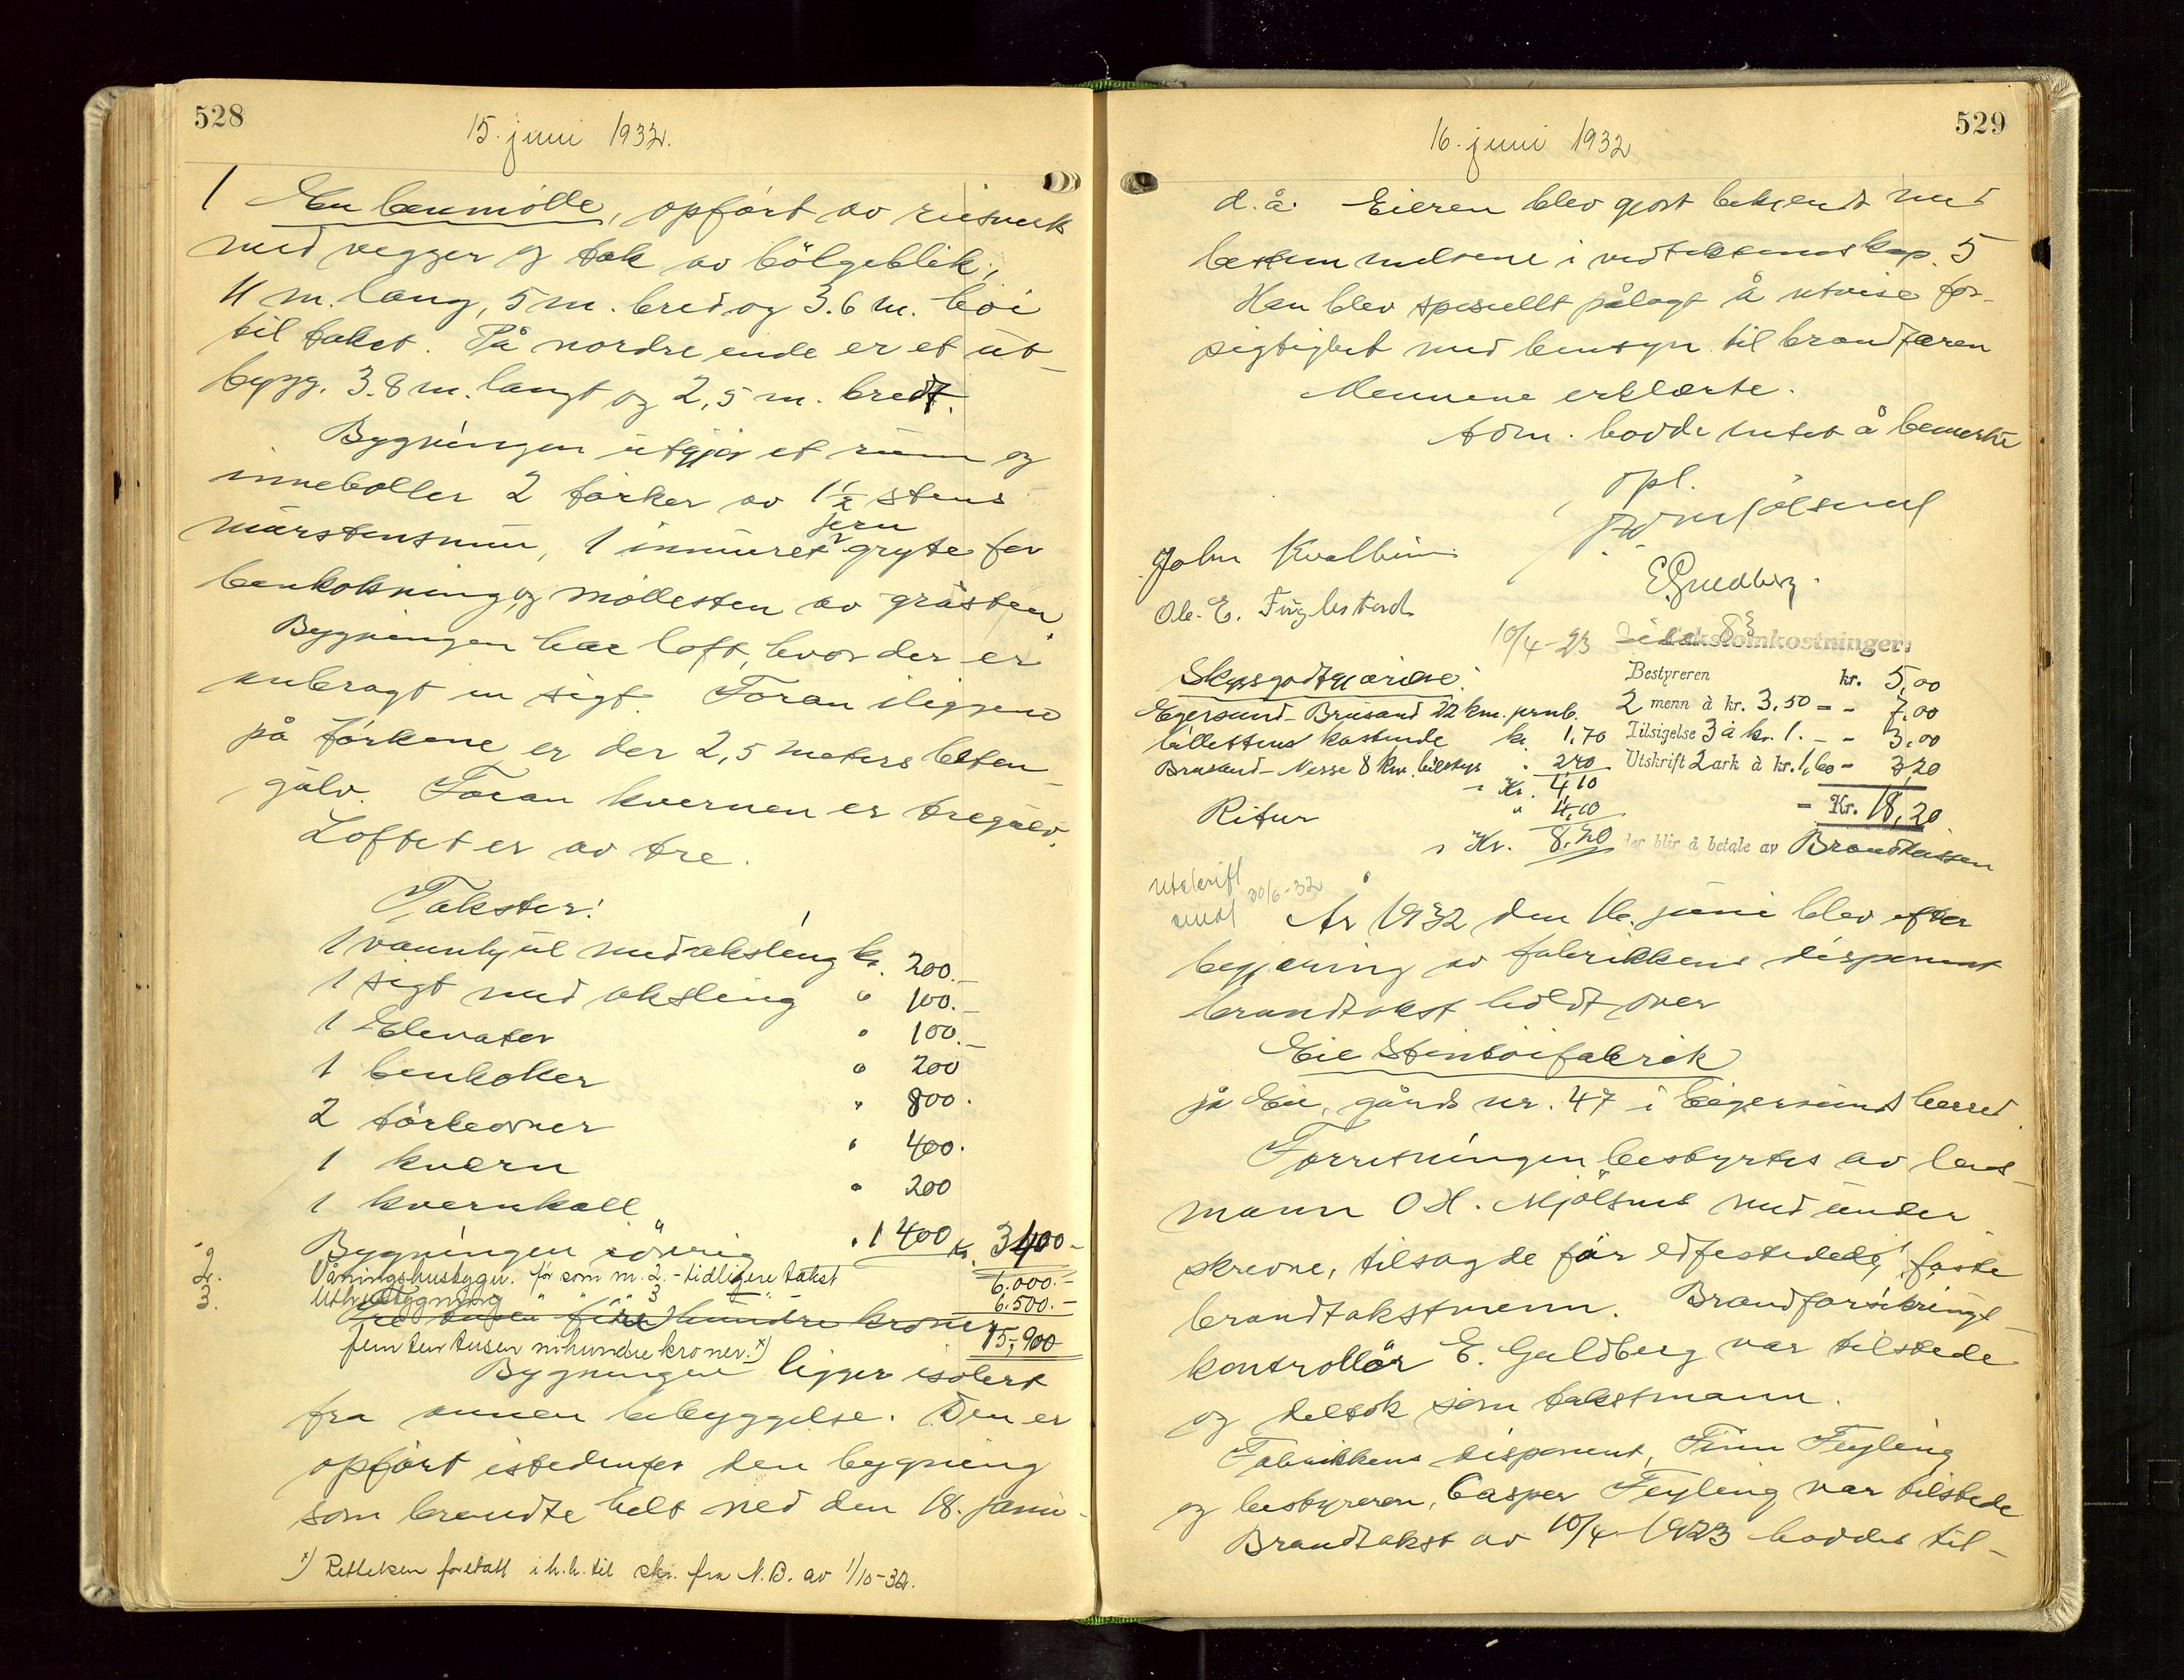 528
15. juni 1932.
1 En benmølle, opført av
med vegger og tak av bølgeblik,
11 m. lang, 5 m. bred og 3.6 m. høi
til taket. På nordre ende er et ut-
bygg. 3.8 m. langt og 2,5 m. bredt.
Bygningen utgjør et rum og
inneholder 2 tørker av 1½ stens
murstensmur, 1 inmuret jern gryte for
benkokning og møllesten av gråsten
Bygningen har loft, hvor der er
anbragt en sigt. Foran
på tørkene er der 2,5 meters beton-
gulv. Foran kvernen er tregulv.
Loftet er av tre.
Takster:
1 vannhjul med aksling kr. 200.-
1 sigt med aksling " 100.-
1 Elevator " 100.-
1 benkoker " 200
2 tørkeovner " 800.
1 kvern " 400.
1 kvernkall " 200
Bygningen iøvrig " 1400 kr. 3400-
2. Våningshusbygn. før som nr. 2. - tidligere takst 6.000.-
3. Uthusbygning " " " 3 " " 6.500.-
Tre tusen fire hundre kroner 15,900
femten tusen nihundre kroner. x)
Bygningen ligger isolert
fra annen bebyggelse. Den er
opført istedenfor den bygning
som brendte helt ned den 18. janu-
x) Rettelsen foretatt i h.h. til skr. fra N.B. av 1/10-32.
529
16. juni 1932
d.å. Eieren blev gjort bekjendt med
bestemmelsene i vedtektenes kap. 5
Han blev spesiellt pålagt å utvise for-
sigtighet med bensyn til brandfaren
Mennene erklærte.
hadde intet å bemerke
opl.
John Kvalheim
E Guldberg.
Ole. E. Fuglestad
10/4-23 Takstomkostninger:
Skyssgodtgjørelse: Bestyreren kr. 5,00
Egersund-Brusand 22 km. jernb. 2 menn à kr. 3,50 = - 7,00
billettens kostende kr 1,70 Tilsigelse 3 à kr. 1. - - 3,00
Brusand-Nesse 8 km. bilskyss " 2.40 Utskrift 2 ark à kr. 1,60 - 3,20
" Kr. 4,10 - Kr. 18,20
Retur " 4,10
" Kr. 8.20 der blir å betale av Brandkassen
Utskrift 30/6-32
sendt
År 1932 den 16. juni blev efter
begjæring av fabrikkens disponent
brandtakst holdt over
Eie Stentøifabrik
på Eie, gårds nr. 47 i Eigersund herred.
Forretningen bestyrtes av lens-
mann O.H. Mjølsnes med under
skrevne, tilsagde før edfestede, faste
brandtakstmenn. Brandforsikrings-
kontrollør E. Guldberg var tilstede
og deltok som takstmann.
Fabrikkens disponent, Finn Feyling
og bestyreren, Casper Feyling var tilstede
Brandtakst av 10/4 1923 haddes til-